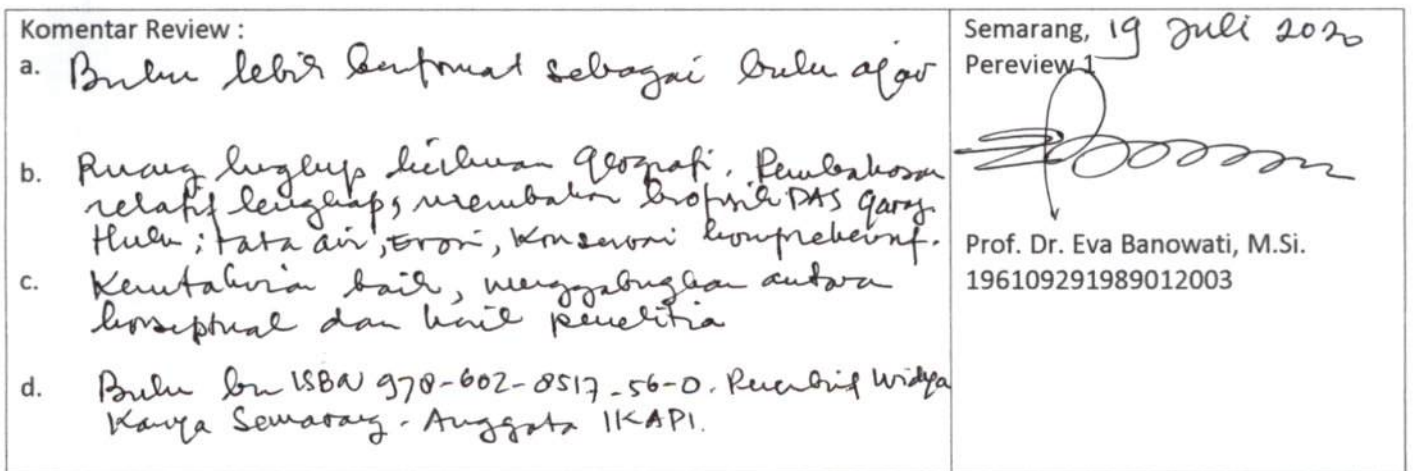 Komentar Review :
a. Buku lebih berformat sebagai buku ajar
b. Ruang lingkup keilmuan geografi. Pembahasan
relatif lengkap, membahas biofisik DAS Garang
Hulu; tata air, Erosi, Konservasi komprehensif.
c. Kemutahiran baik, menggabungkan antara
konseptual dan hasil penelitian
d. Buku ISBN 978-602-8517-56-0. Penerbit Widya
Karya Semarang - Anggota IKAPI.
Semarang, 19 Juli 2020
Pereview 1
Prof. Dr. Eva Banowati, M.Si.
196109291989012003